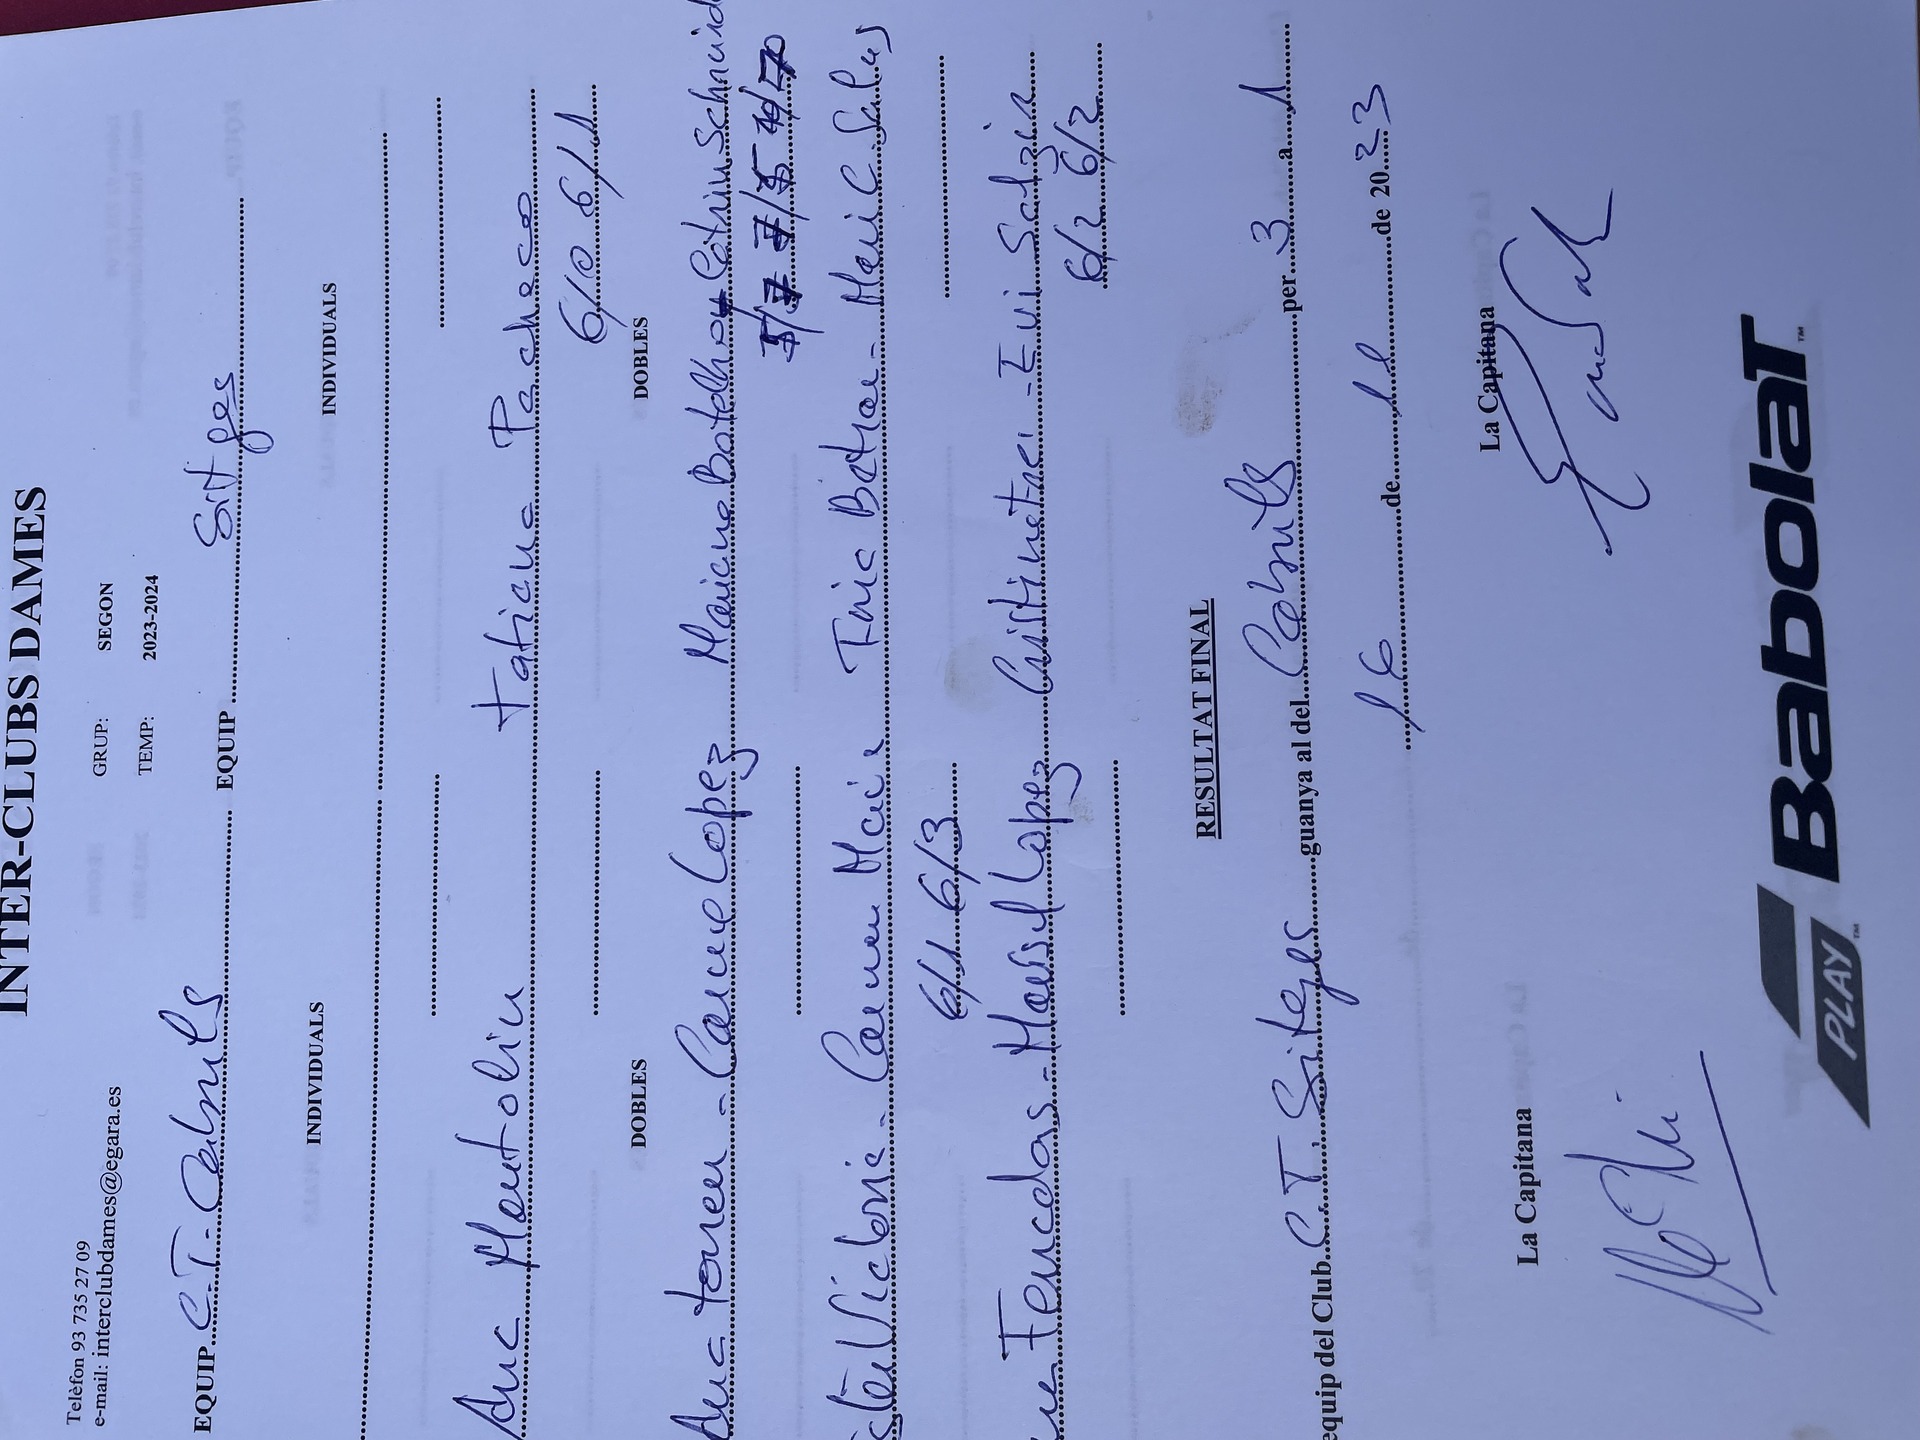 INTER-CLUBS DAMES
Telèfon 93 735 27 09 GRUP: SEGON
e-mail: interclubdames@egara.es TEMP: 2023-2024
EQUIP C.T. Cabrils EQUIP Sitges
INDIVIDUALS INDIVIDUALS
Ana Montoliu Tatiana Pacheco
6/0 6/1
DOBLES DOBLES
Ana Torren - Carme Lopez Mariana Botelho - Catrin Schneid
5/7 7/5 10/7
Victoria - Carmen Macia Tania - Mari C. Salas
6/1 6/3
Fendas - Marisol Lopez Cristina - Evi Salzin
6/2 6/2
RESULTAT FINAL
equip del Club C.T. Sitges guanya al del Cabrils per 3 a 1
16 de 11 de 2023
La Capitana La Capitana
PLAY Babolat